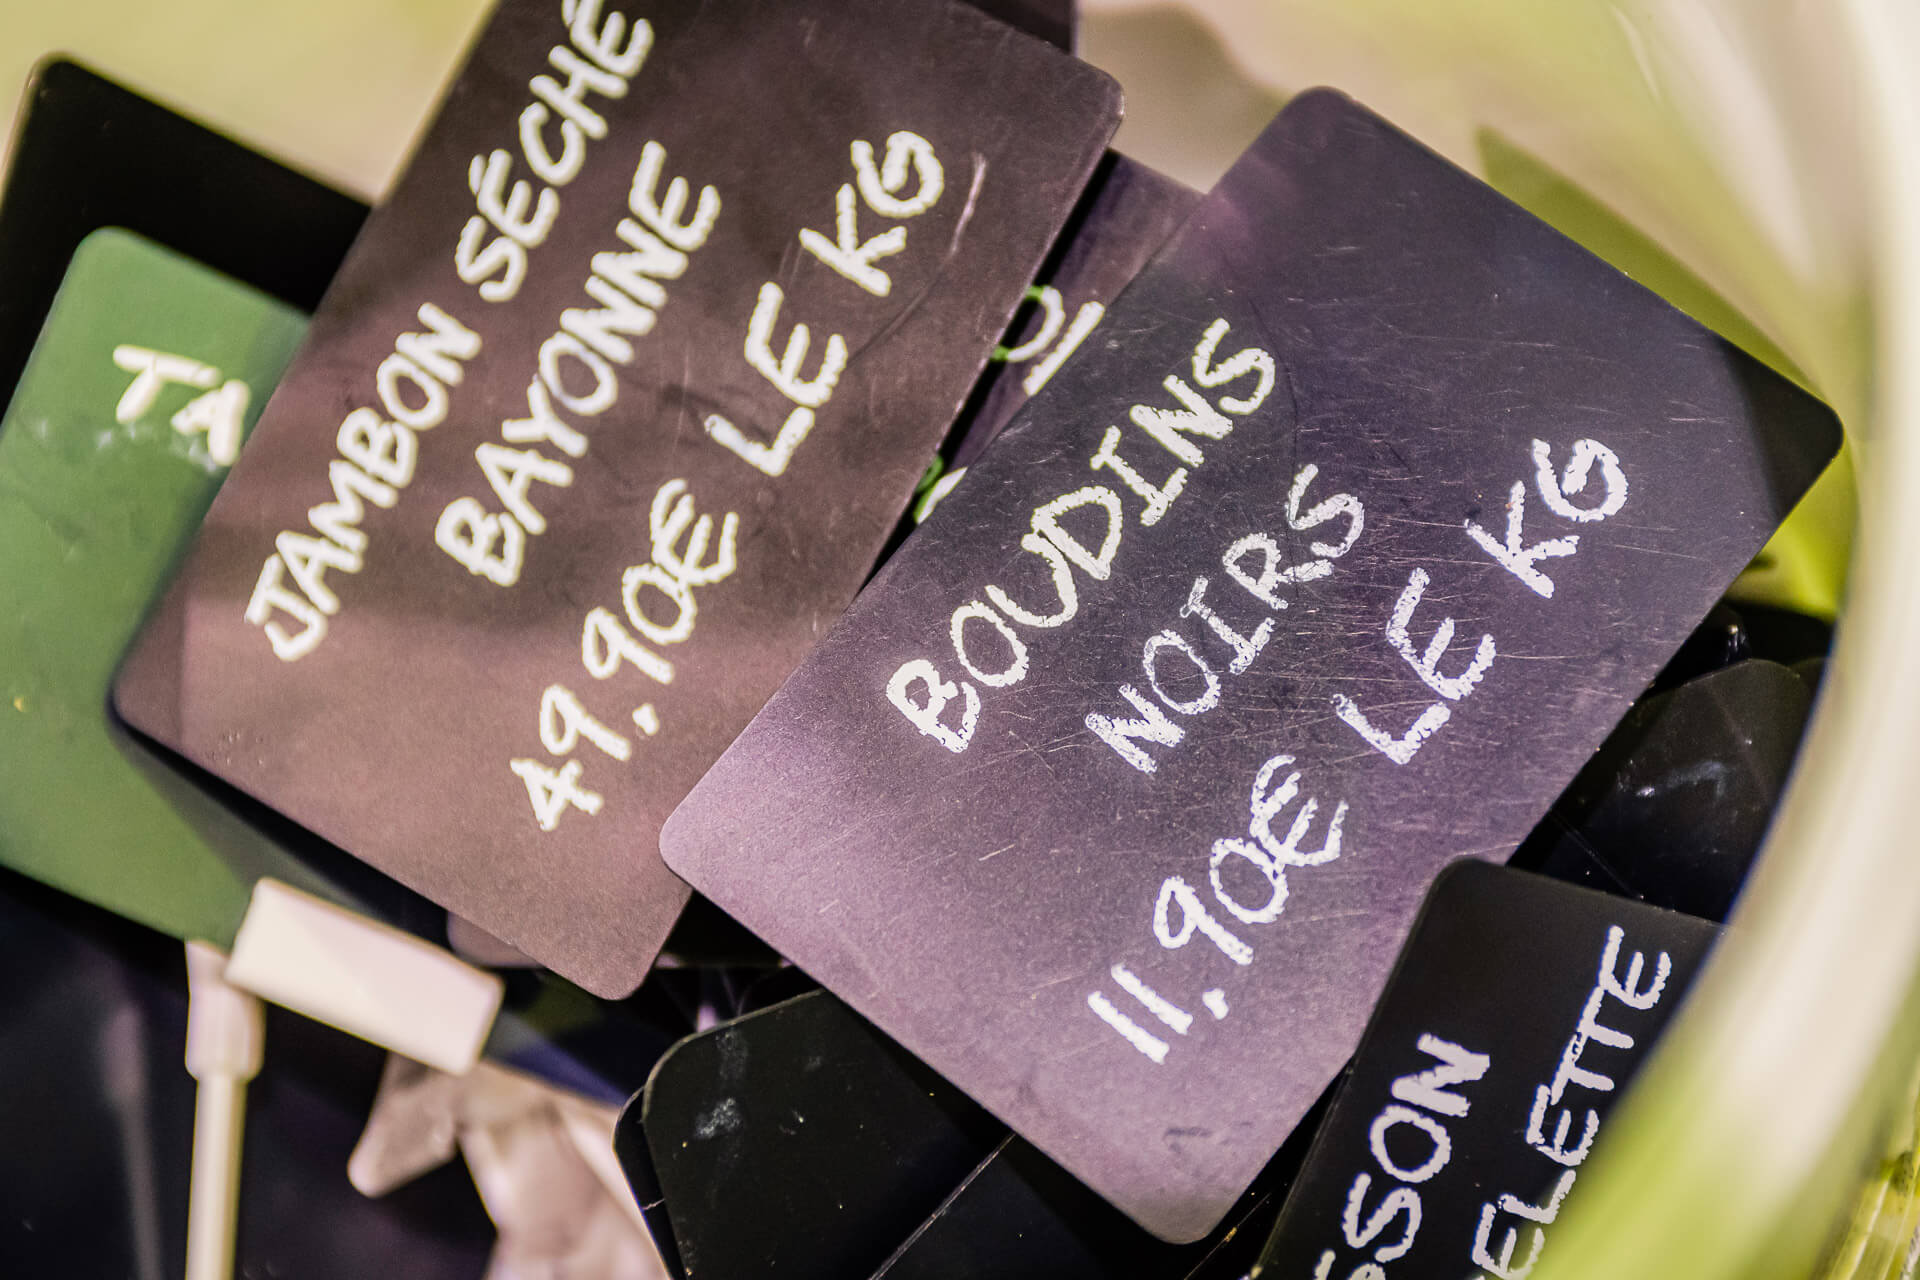 TA
JAMBON SÉCHÉ
BAYONNE
49,90€ LE KG
BOUDINS
NOIRS
11,90€ LE KG
SSON
ELETTE